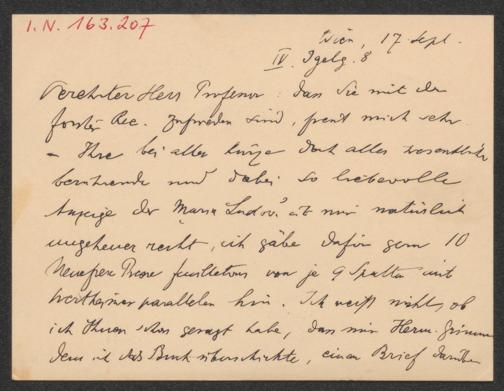 I.N. 163.207
Wien, 17 Sept.
IV. Igelg. 8
Verehrter Herr Professor: dass Sie mit der
Forster Rec. zufrieden sind, freut mich sehr
– Ihre bei aller Kürze doch alles wesentliche
berührende und dabei so liebevolle
Anzeige der "Maria Ludov." ist mir natürlich
ungeheuer recht, ich gäbe dafür gern 10
Neue freie Presse feuilletons von je 9 Spalten mit
Wertheimer parallelen hin. Ich weiß nicht, ob
ich Ihnen schon gesagt habe, dass mir Herm. Grimm
dem ich das Buch überschickte, einen Brief darüber